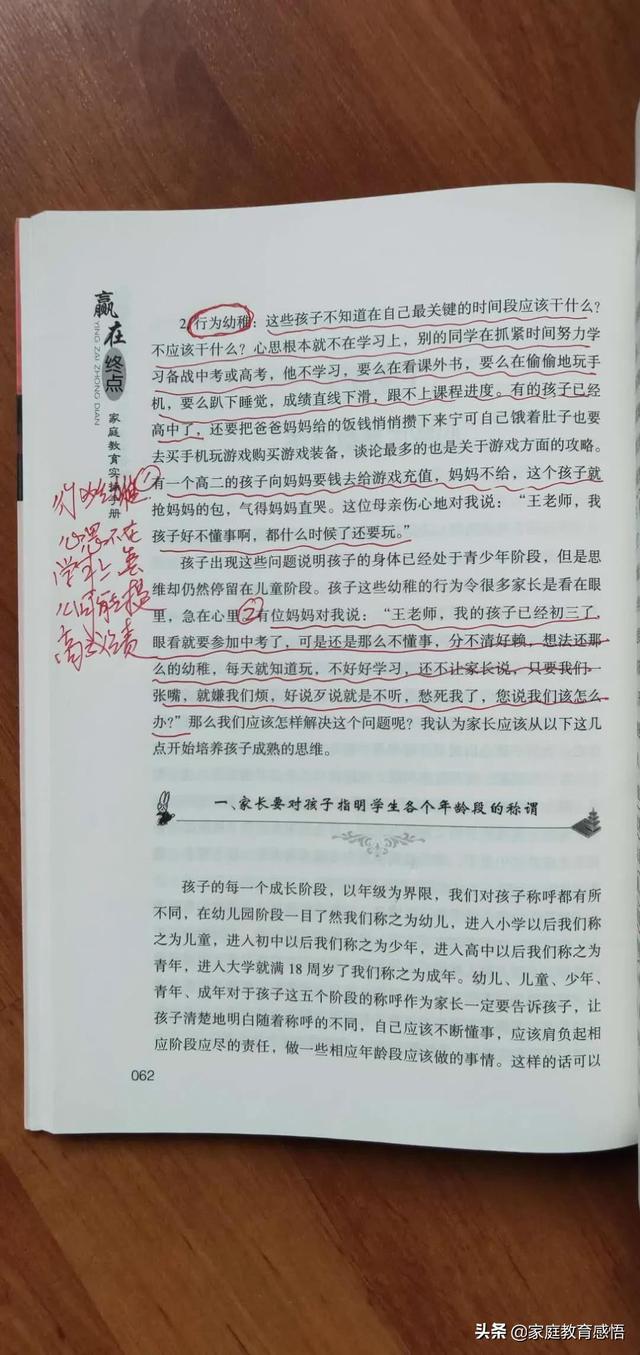 赢在终点
YING ZAI ZHONG DIAN
家庭教育实操手册
2.行为幼稚：这些孩子不知道在自己最关键的时间段应该干什么？
不应该干什么？心思根本就不在学习上，别的同学在抓紧时间努力学
习备战中考或高考，他不学习，要么在看课外书，要么在偷偷地玩手
机，要么趴下睡觉，成绩直线下滑，跟不上课程进度。有的孩子已经
高中了，还要把爸爸妈妈给的饭钱悄悄攒下来宁可自己饿着肚子也要
去买手机玩游戏购买游戏装备，谈论最多的也是关于游戏方面的攻略。
有一个高二的孩子向妈妈要钱去给游戏充值，妈妈不给，这个孩子就
抢妈妈的包，气得妈妈直哭。这位母亲伤心地对我说：“王老师，我
孩子好不懂事啊，都什么时候了还要玩。”
孩子出现这些问题说明孩子的身体已经处于青少年阶段，但是思
维却仍然停留在儿童阶段。孩子这些幼稚的行为令很多家长是看在眼
里，急在心里②有位妈妈对我说：“王老师，我的孩子已经初三了，
眼看就要参加中考了，可是还是那么不懂事，分不清好赖，想法还那
么的幼稚，每天就知道玩，不好好学习，还不让家长说，只要我们一
张嘴，就嫌我们烦，好说歹说就是不听，愁死我了，您说我们该怎么
办？”那么我们应该怎样解决这个问题呢？我认为家长应该从以下这几
点开始培养孩子成熟的思维。
①
心思不在
学习上
高成绩
一、家长要对孩子指明学生各个年龄段的称谓
孩子的每一个成长阶段，以年级为界限，我们对孩子称呼都有所
不同，在幼儿园阶段一目了然我们称之为幼儿，进入小学以后我们称
之为儿童，进入初中以后我们称之为少年，进入高中以后我们称之为
青年，进入大学就满 18 周岁了我们称之为成年。幼儿、儿童、少年、
青年、成年对于孩子这五个阶段的称呼作为家长一定要告诉孩子，让
孩子清楚地明白随着称呼的不同，自己应该不断懂事，应该肩负起相
应阶段应尽的责任，做一些相应年龄段应该做的事情。这样的话可以
062
头条 @家庭教育感悟